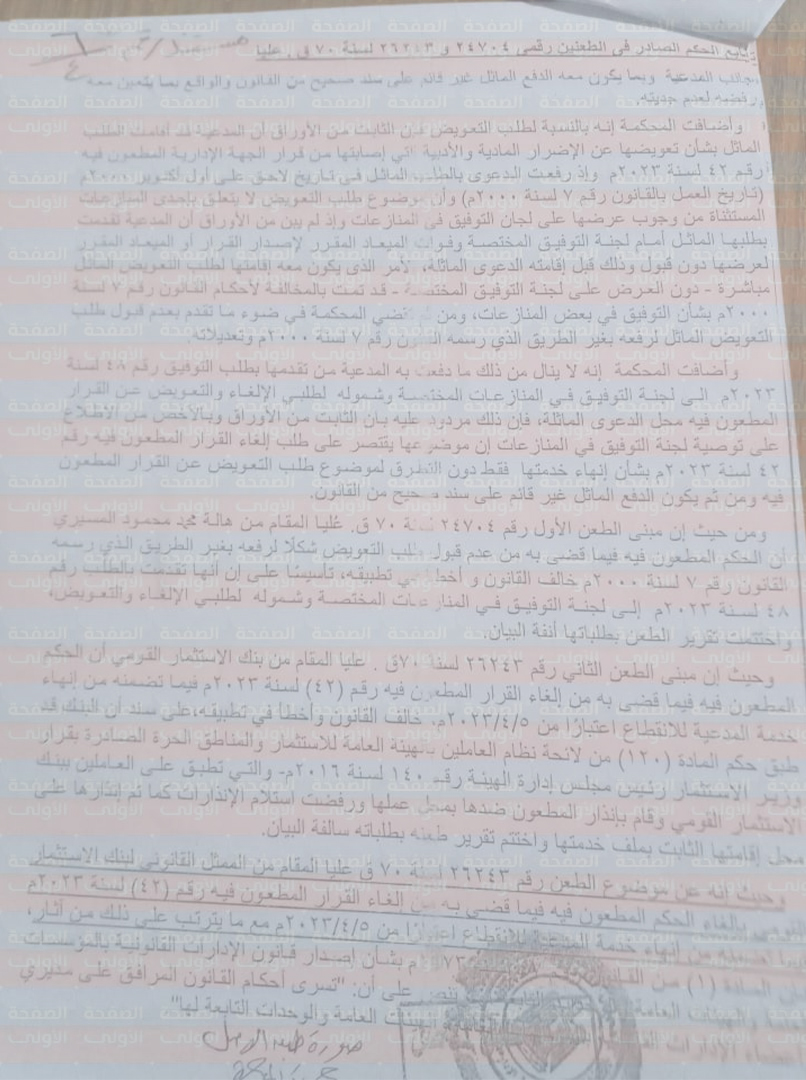 تابع الحكم الصادر فى الطعنين رقمى ٢٤٧٠٤ و ٢٦٢٤٣ لسنة ٧٠ ق . عليا
بجانب المدعية وبما يكون معه الدفع الماثل غير قائم على سند صحيح من القانون والواقع بما يتعين معه
رفضه لعدم جديته.
وأضافت المحكمة إنه بالنسبة لطلب التعويض فإن الثابت من الأوراق أن المدعية قد أقامت الطلب
الماثل بشأن تعويضها عن الإضرار المادية والأدبية التي إصابتها من قرار الجهة الإدارية المطعون فيه
رقم ٤٢ لسنة ٢٠٢٣م وإذ رفعت الدعوى بالطلب الماثل في تاريخ لاحق على أول أكتوبر ٢٠٠٠م
(تاريخ العمل بالقانون رقم ٧ لسنة ٢٠٠٠م) وأن موضوع طلب التعويض لا يتعلق بإحدى المنازعات
المستثناة من وجوب عرضها على لجان التوفيق في المنازعات وإذ لم يبن من الأوراق أن المدعية تقدمت
بطلبها الماثل أمام لجنة التوفيق المختصة وفوات الميعاد المقرر لإصدار القرار أو الميعاد المقرر
لعرضها دون قبول وذلك قبل إقامته الدعوى الماثلة، الأمر الذى يكون معه إقامتها لطلب التعويض الماثل
مباشرة - دون العرض على لجنة التوفيق المختصة - قد تمت بالمخالفة لأحكام القانون رقم ٧ لسنة
٢٠٠٠م بشأن التوفيق في بعض المنازعات، ومن ثم تقضي المحكمة في ضوء ما تقدم بعدم قبول طلب
التعويض الماثل لرفعه بغير الطريق الذي رسمه القانون رقم ٧ لسنة ٢٠٠٠م وتعديلاته.
وأضافت المحكمة إنه لا ينال من ذلك ما دفعت به المدعية من تقدمها بطلب التوفيق رقم ٤٨ لسنة
٢٠٢٣م إلى لجنة التوفيق في المنازعات المختصة وشموله لطلبي الإلغاء والتعويض عن القرار
المطعون فيه محل الدعوى الماثلة، فإن ذلك مردود عليه بان الثابت من الأوراق وبالأخص من الاطلاع
على توصية لجنة التوفيق في المنازعات إن موضوعها يقتصر على طلب إلغاء القرار المطعون فيه رقم
٤٢ لسنة ٢٠٢٣م بشأن إنهاء خدمتها فقط دون التطرق لموضوع طلب التعويض عن القرار المطعون
فيه ومن ثم يكون الدفع الماثل غير قائم على سند صحيح من القانون.
ومن حيث إن مبنى الطعن الأول رقم ٢٤٧٠٤ لسنة ٧٠ ق. عُليا المقام من هالة محمد محمود المسيري
أن الحكم المطعون فيه فيما قضى به من عدم قبول طلب التعويض شكلًا لرفعه بغير الطريق الذي رسمه
القانون رقم ٧ لسنة ٢٠٠٠م خالف القانون و أخطأ في تطبيقه، تأسيسًا على إن أنها تقدمت بالطلب رقم
٤٨ لسنة ٢٠٢٣م إلى لجنة التوفيق في المنازعات المختصة وشموله لطلبي الإلغاء والتعويض،
واختتمت تقرير الطعن بطلباتها أنفة البيان.
وحيث إن مبنى الطعن الثاني رقم ٢٦٢٤٣ لسنة ٧٠ق . عليا المقام من بنك الاستثمار القومي أن الحكم
المطعون فيه فيما قضى به من إلغاء القرار المطعون فيه رقم (٤٢) لسنة ٢٠٢٣م فيما تضمنه من إنهاء
خدمة المدعية للانقطاع اعتبارًا من ٢٠٢٣/٤/٥م، خالف القانون وأخطأ في تطبيقه، على سند أن البنك قد
طبق حكم المادة (١٢٠) من لائحة نظام العاملين بالهيئة العامة للاستثمار والمناطق الحرة الصادرة بقرار
وزير الاستثمار رئيس مجلس إدارة الهيئة رقم ١٤٠ لسنة ٢٠١٦م- والتي تطبق على العاملين ببنك
الاستثمار القومي وقام بإنذار المطعون ضدها بمحل عملها ورفضت استلام الإنذارات كما تم إنذارها على
محل إقامتها الثابت بملف خدمتها واختتم تقرير طعنه بطلباته سالفة البيان.
وحيث إنه عن موضوع الطعن رقم ٢٦٢٤٣ لسنة ٧٠ ق عليا المقام من الممثل القانونى لبنك الاستثمار
القومي بالغاء الحكم المطعون فيه فيما قضى به من إلغاء القرار المطعون فيه رقم (٤٢) لسنة ٢٠٢٣م
فيما تضمنه من إنهاء خدمة المدعية للانقطاع اعتبارًا من ٢٠٢٣/٤/٥م مع ما يترتب على ذلك من آثار،
فإن المادة (١) من القانون بشان إصدار قانون الإدارات القانونية بالمؤسسات
العامة والهيئات العامة تنص على أن: "تسرى أحكام القانون المرافق على مديري
وأعضاء الإدارات القانونية الهيئات العامة والوحدات التابعة لها"
صورة طبق الاصل
الصفحة الأولى